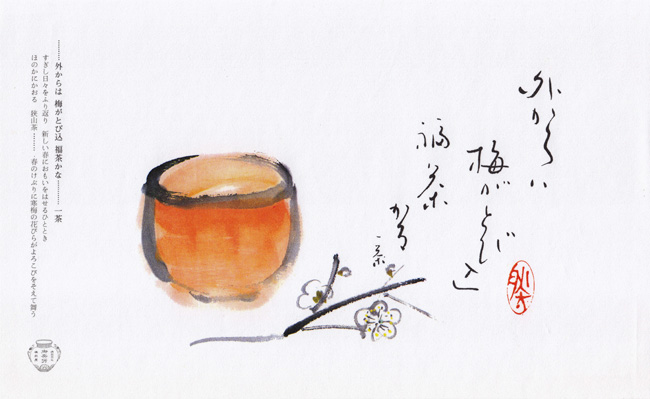 外からハ
梅がとび込
福茶
かな
一茶
………外からは 梅がとび込 福茶かな………一茶
すぎし日々をふり返り 新しい春におもいをはせるひととき
ほのかにかおる 狭山茶………春のけぶりに寒梅の花びらがよろこびをそえて舞う